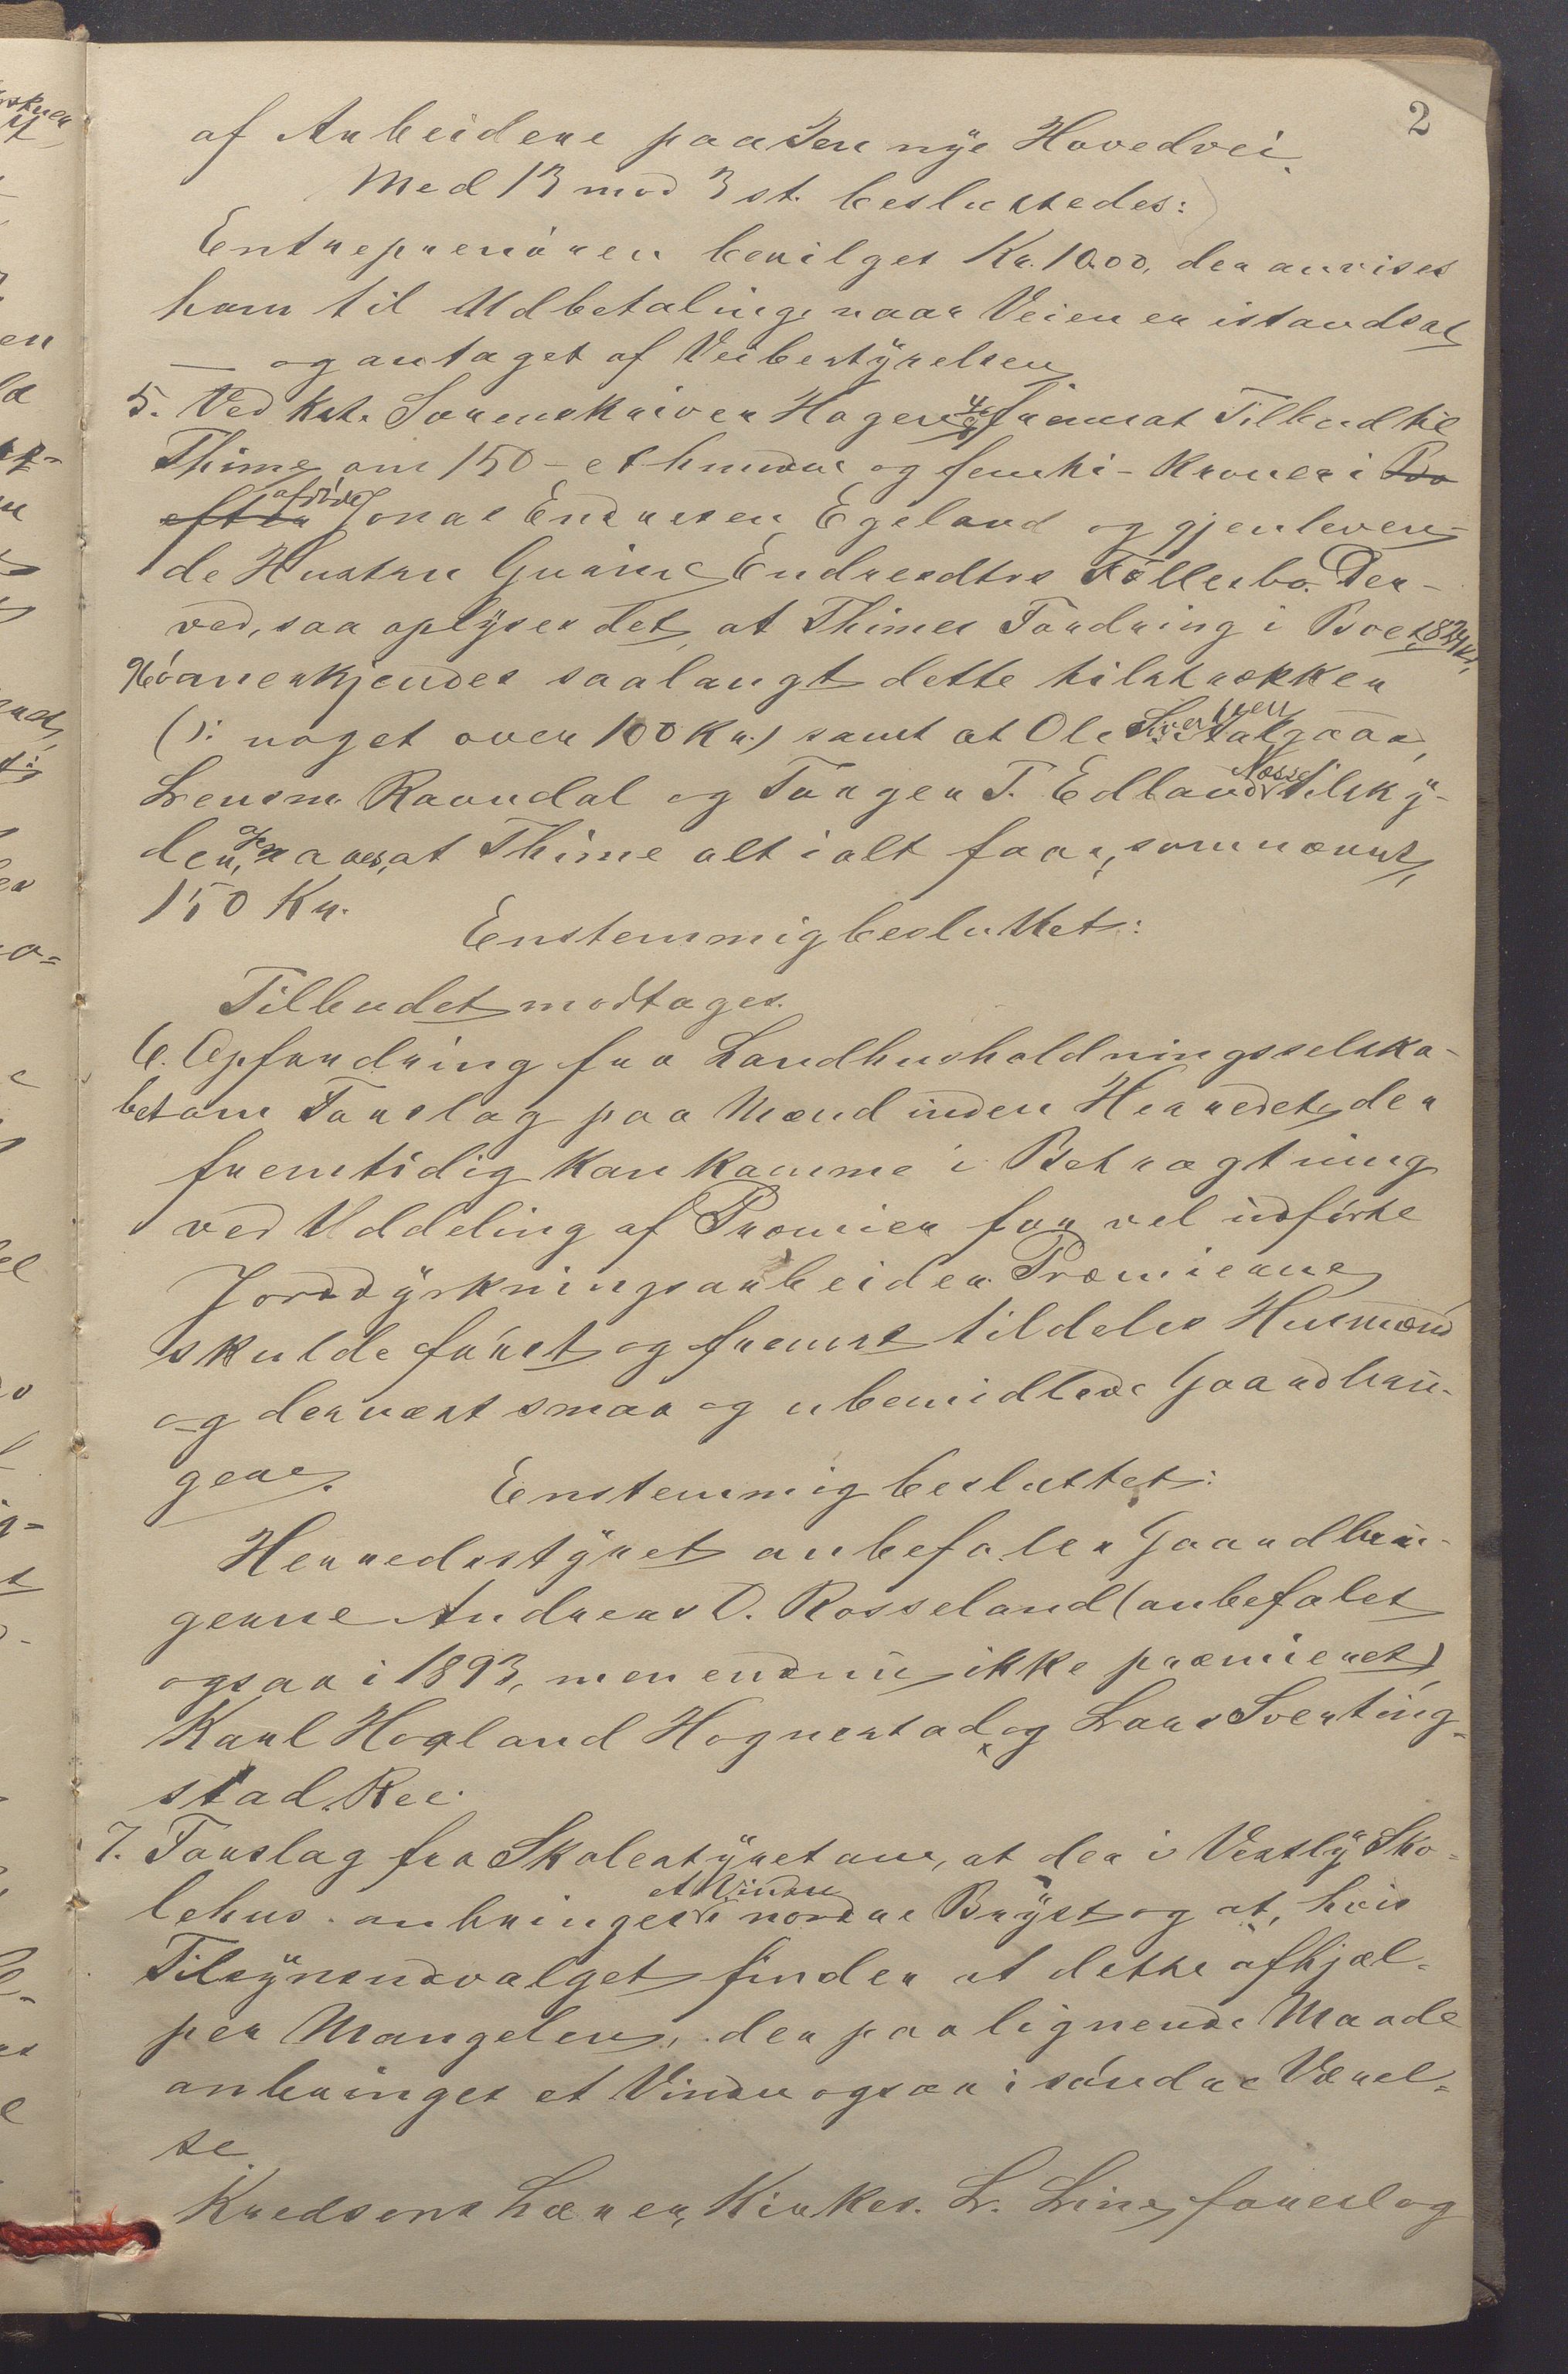 2
af Arbeidere paa den nye Hovedvei.
Med 13 mod 3 st. besluttedes:
Entreprenören bevilges Kr. 1000, der anvises
ham til Udbetaling, naar Veien er istandsat
— og antaget af Veibestyrelsen
5. Ved kst. Sorenskriver Hagen fremsat Tilbud til
Thime om 150 - et hundre og femti - Kroner i Bo
efter afdöde Jonas Endresen Egeland og gjenleven-
de Hustru Gurine Endresdtrs Föllesbo. Der-
ved, saa oplyses det, at Thimes Fordring i Boet, 824 Kr.,
anerkjendes saalangt dette tilstrækker
(: noget over 100 Kr.) samt at Ole Sivertsen Aakgaar,
Lensm. Ravndal og Torger T. Edland Næsse tilsky-
der, at Thime alt i alt faar, som nævnt,
150 Kr.
Enstemmig besluttet:
Tilbudet modtages.
6. Opfordring fra Landhusholdningsselska-
bet om Forslag paa Mænd inden Herredet, der
fremtidig kan komme i Betragtning
ved Uddeling af Præmier for vel udförte
Jorddyrkningsarbeider. Præmierne
skulde först og fremst tildeles Husmænd
og dernæst smaa og ubemidlede Gaardbru-
gere.
Enstemmig besluttet:
Herredsstyret anbefaler Gaardbru-
gerne Andreas O. Rosseland (anbefalet
ogsaa i 1893, men endnu ikke præmieret)
Karl Hogland Hognestad og Lars Sverting-
stad Ree.
7. Forslag fra Skolestyret om, at der i Vestly Sko-
lehus anbringes et Vindu i nordre Bryst og at, hvis
Tilsynsudvalget finder at dette afhjæl-
per Mangelen, der paa lignende Maade
anbringes et Vindu ogsaa i söndre Værel-
se.
Kredsens Lærer, Kirkes. L. Line, foreslog